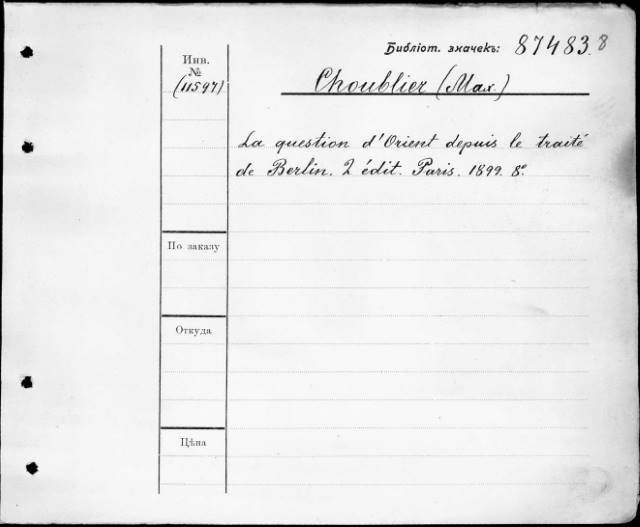 Библіот. значекъ: 87483.8
Инв.
№
(11597)
Choublier (Max.)
La question d'Orient depuis le traité
de Berlin. 2 édit. Paris. 1899. 8°.
По заказу
Откуда
Цѣна